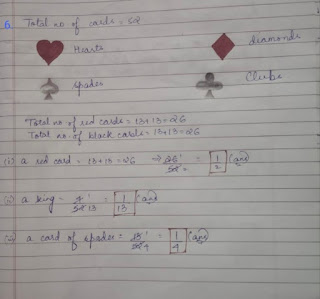 6) Total no of cards = 52
Hearts
diamonds
spades
Clubs
Total no of red cards = 13+13 = 26
Total no. of black cards = 13+13 = 26
(i) a red card = 13+13 = 26 ⇒ 26/52 = 1/2 (ans)
(ii) a king = 4/52 13 = 1/13 (ans)
(iii) a card of spades = 13/52 4 = 1/4 (ans)